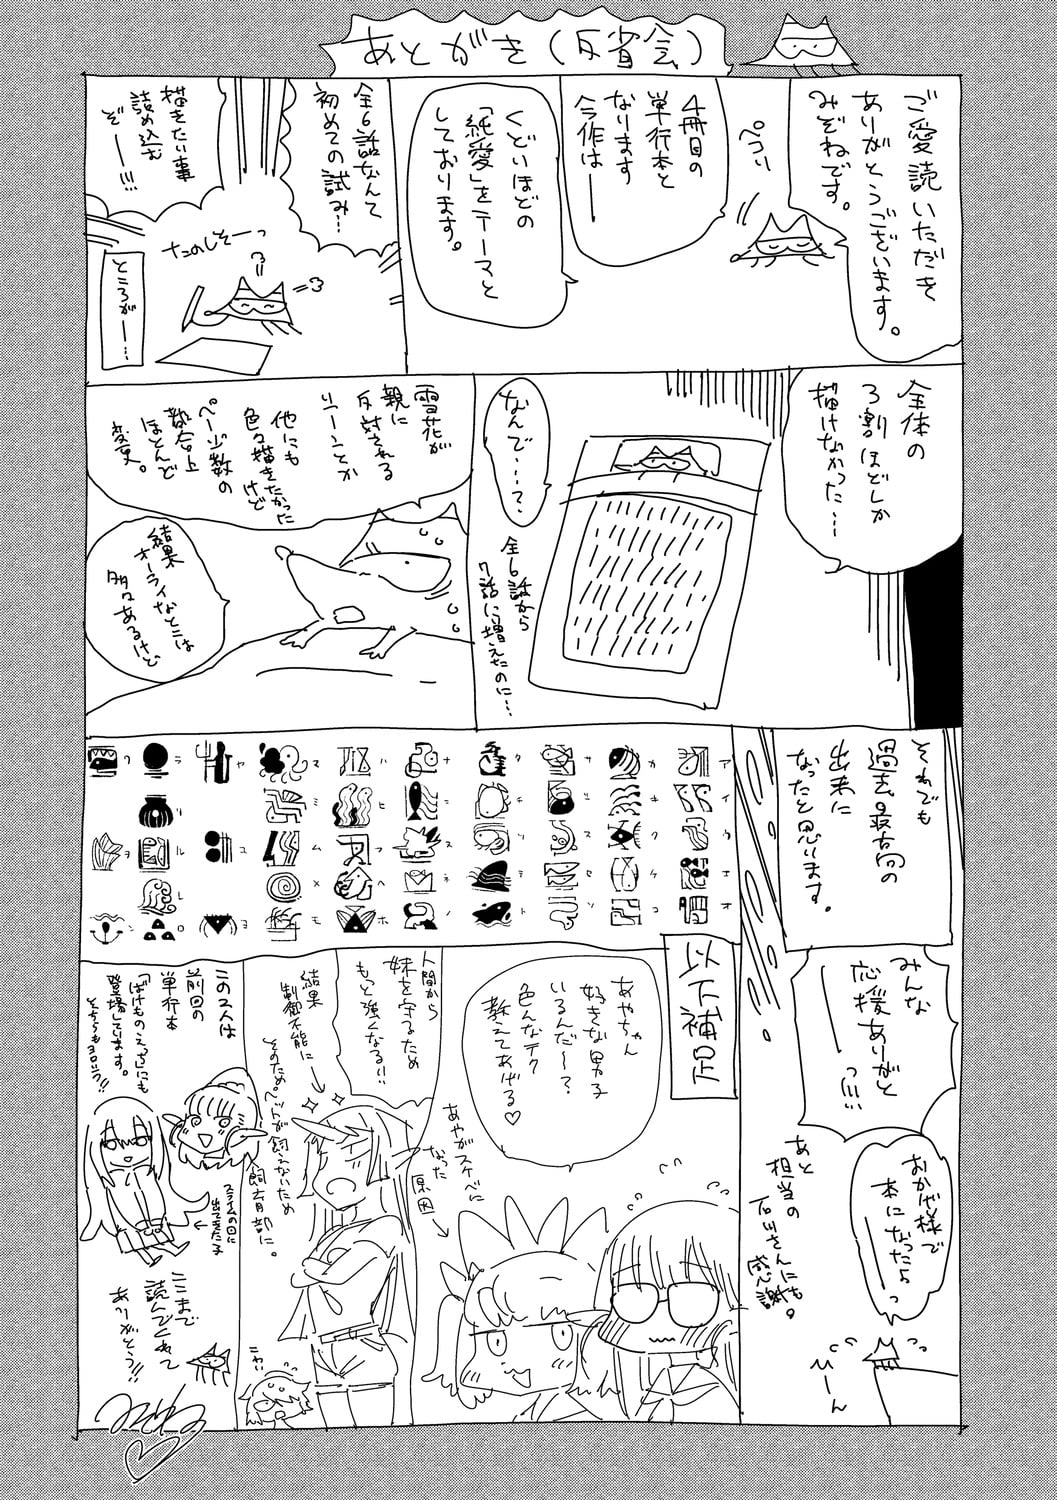 あとがき(反省会)
ご愛読いただき
ありがとうございます。
みぞねです。
ペコリ
4冊目の
単行本と
なります
今作は――
くどいほどの
「純愛」をテーマと
しております。
全6話なんて
初めての試み…
描きたい事
詰め込む
ぞ――!!!
たのしそーっ
ところが――…
全体の
3割ほどしか
描けなかった…
なんで……?
全6話から
7話に増えたのに…
雪花が
親に
反対される
シーンとか
他にも
色々描きたかった
けど
ページ数の
都合上
ほとんど
変更。
結果
オーライなとこは
多々あるけど
それでも
過去最高の
出来に
なったと思います。
みんな
応援ありがと
――っ!!!!
おかげ様で
本になったら
――っ
あと
担当の
感謝。
ア
イ
ウ
エ
オ
カ
キ
ク
ケ
コ
サ
シ
ス
セ
ソ
タ
チ
ツ
テ
ト
ナ
ニ
ヌ
ネ
ノ
ハ
ヒ
フ
ヘ
ホ
マ
ミ
ム
メ
モ
ヤ
ユ
ヨ
ラ
リ
ル
レ
ロ
ワ
ヲ
ン
以下補足
あやちゃん
好きな男子
いるんだ〜?
色んなテク
教えてあげる♡
あやがスケベに
なった
原因→
人間から
妹を守るため
もっと強くなる!!
結果
制御不能に→
そのため。ペットが飼えないため
飼育部に。
この2人は
前回の
単行本
「ばけものえっち」にも
登場しています。
そちらもヨロシク!!
スライムの回に
出てきた子
ここまで
読んでくれて
ありがとう!!
みぞね